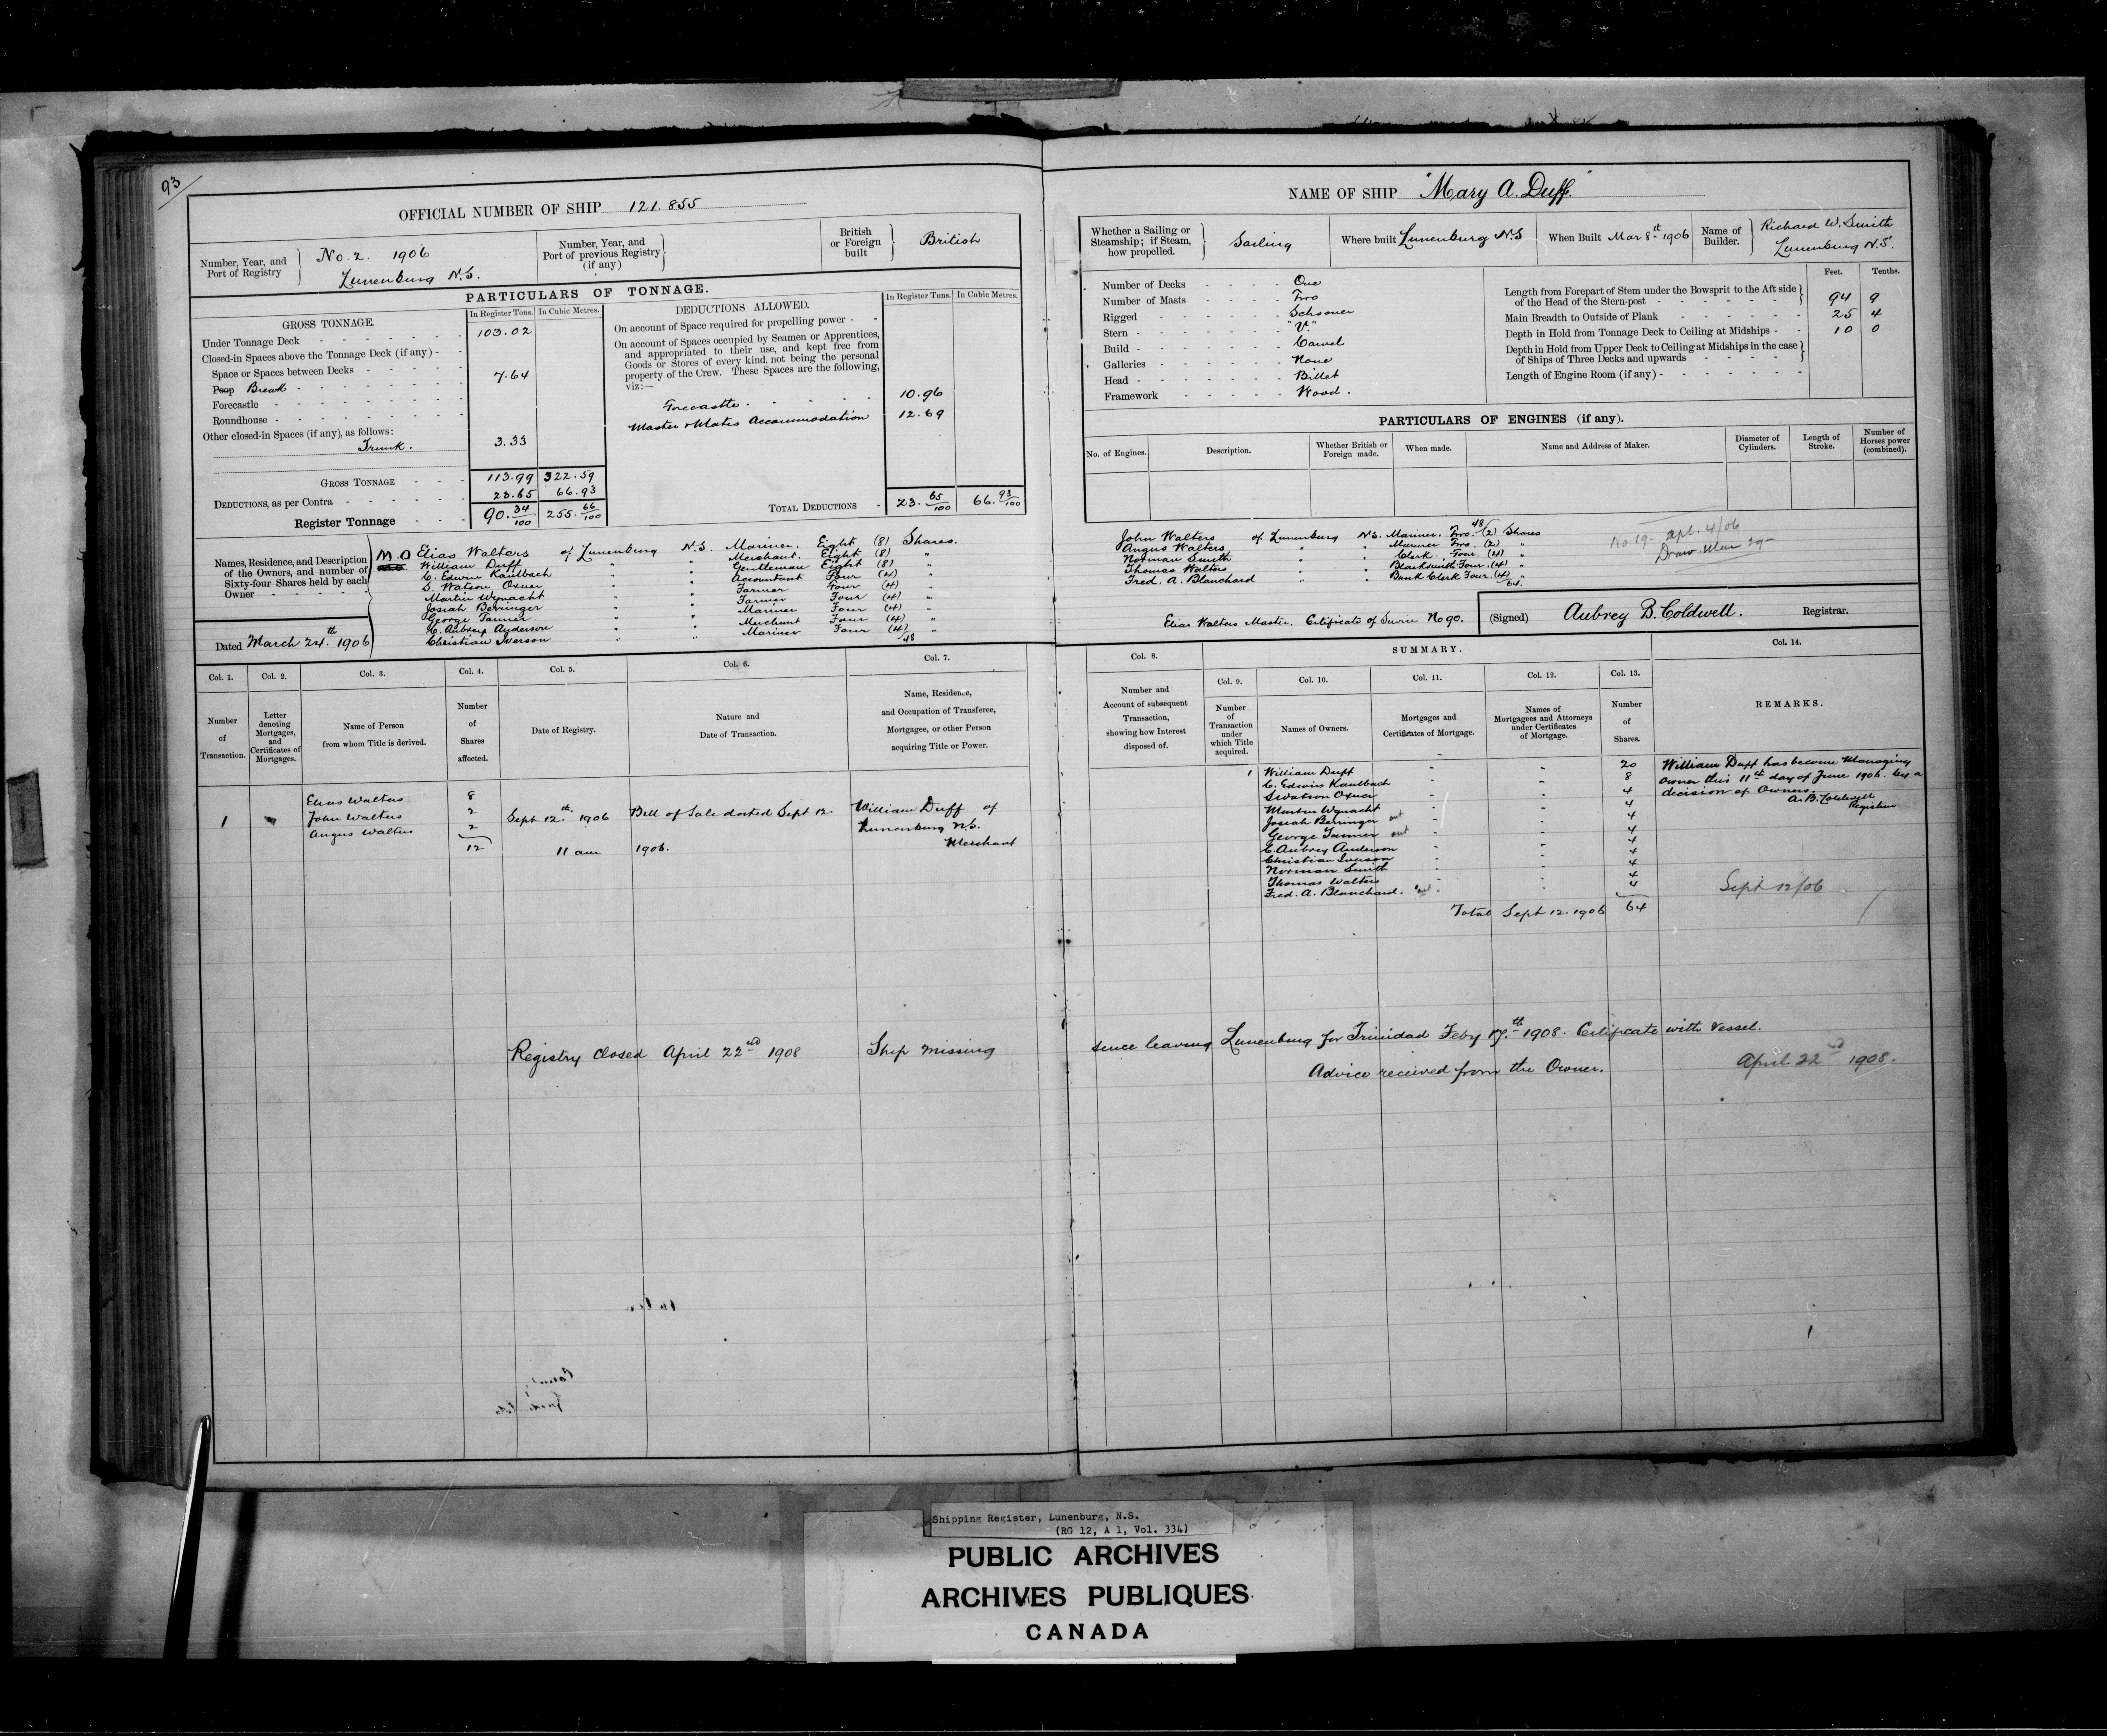 93
OFFICIAL NUMBER OF SHIP 121.855
Number, Year, and Port of Registry
No. 2. 1906
Lunenburg N.S.
Number, Year, and Port of previous Registry (if any)
British or Foreign built
British
PARTICULARS OF TONNAGE.
GROSS TONNAGE.
In Register Tons.
In Cubic Metres.
Under Tonnage Deck 103.02
Closed-in Spaces above the Tonnage Deck (if any) -
Space or Spaces between Decks
Poop Break 7.64
Forecastle
Roundhouse
Other closed-in Spaces (if any), as follows:
Trunk. 3.33
GROSS TONNAGE 113.99 322.59
DEDUCTIONS, as per Contra 23.65 66.93
Register Tonnage 90.34/100 255.66/100
DEDUCTIONS ALLOWED.
In Register Tons.
In Cubic Metres.
On account of Space required for propelling power -
On account of Spaces occupied by Seamen or Apprentices,
and appropriated to their use, and kept free from
Goods or Stores of every kind, not being the personal
property of the Crew. These Spaces are the following,
viz:—
Forecastle. 10.96
Master & Mates Accommodation 12.69
TOTAL DEDUCTIONS 23.65/100 66.93/100
Names, Residence, and Description
of the Owners, and number of
Sixty-four Shares held by each
Owner
M.O Elias Walters of Lunenburg N.S. Mariner. Eight (8) Shares.
William Duff " " Merchant. Eight (8) "
C. Edwin Kaulbach " " Gentleman Eight (8) "
S. Watson Oxner " " Accountant Four (4) "
Martin Wynacht " " Farmer Four (4) "
Josiah Berringer " " Farmer Four (4) "
George Tanner " " Mariner Four (4) "
C. Aubrey Anderson " " Merchant Four (4) "
Christian Iverson " " Mariner Four (4) "
48
Dated March 24th 1906
NAME OF SHIP "Mary A. Duff."
Whether a Sailing or Steamship; if Steam, how propelled.
Sailing
Where built Lunenburg N.S
When Built Mar 8th 1906
Name of Builder.
Richard W. Smith
Lunenburg N.S.
Number of Decks One
Number of Masts Two
Rigged Schooner
Stern "V."
Build Carvel
Galleries None
Head Billet
Framework Wood.
Feet. Tenths.
Length from Forepart of Stem under the Bowsprit to the Aft side
of the Head of the Stern-post 94 9
Main Breadth to Outside of Plank 25 4
Depth in Hold from Tonnage Deck to Ceiling at Midships 10 0
Depth in Hold from Upper Deck to Ceiling at Midships in the case
of Ships of Three Decks and upwards
Length of Engine Room (if any)
PARTICULARS OF ENGINES (if any).
No. of Engines.
Description.
Whether British or Foreign made.
When made.
Name and Address of Maker.
Diameter of Cylinders.
Length of Stroke.
Number of Horses power (combined).
48
John Walters of Lunenburg N.S. Mariner. Two. (2) Shares
Angus Walters " " Mariner Two. (2) "
Norman Smith " " Clerk. Four. (4) "
Thomas Walters " " Blacksmith Four. (4) "
Fred. A. Blanchard " " Bank Clerk Four. (4) "
64.
No 19- apl. 4/06
Draw. Mar 29-
Elias Walters Master. Certificate of No 90.
(Signed) Aubrey B. Coldwell. Registrar.
Col. 1.
Number of Transaction.
Col. 2.
Letter denoting Mortgages, and Certificates of Mortgages.
Col. 3.
Name of Person from whom Title is derived.
Col. 4.
Number of Shares affected.
Col. 5.
Date of Registry.
Col. 6.
Nature and Date of Transaction.
Col. 7.
Name, Residence, and Occupation of Transferee, Mortgagee, or other Person acquiring Title or Power.
Col. 8.
Number and Account of subsequent Transaction, showing how Interest disposed of.
SUMMARY.
Col. 9.
Number of Transaction under which Title acquired.
Col. 10.
Names of Owners.
Col. 11.
Mortgages and Certificates of Mortgage.
Col. 12.
Names of Mortgagees and Attorneys under Certificates of Mortgage.
Col. 13.
Number of Shares.
Col. 14.
REMARKS.
1
Elias Walters 8
John Walters 2
Angus Walters 2
12
Sept 12th 1906
11 am
Bill of Sale dated Sept 12.
1906.
William Duff of
Lunenburg N.S.
Merchant
1 William Duff - - 20
C. Edwin Kaulbach - - 8
S Watson Oxner - - 4
Martin Wynacht - - 4
Josiah Berringer - - 4
George Tanner - - 4
C. Aubrey Anderson - - 4
Christian Iverson - - 4
Norman Smith - - 4
Thomas Walters - - 4
Fred. A. Blanchard. - - 4
Total Sept 12. 1906 64
William Duff has become Managing
Owner this 11th day of June 1906. by a
decision of Owners.
A. B. Coldwell
Registrar
Sept 12/06
Registry closed April 22nd 1908 Ship missing since leaving Lunenburg for Trinidad Feby 17th 1908. Certificate with vessel.
Advice received from the Owner.
April 22nd 1908.
Shipping Register, Lunenburg, N.S.
(RG 12, A 1, Vol. 334)
PUBLIC ARCHIVES
ARCHIVES PUBLIQUES
CANADA